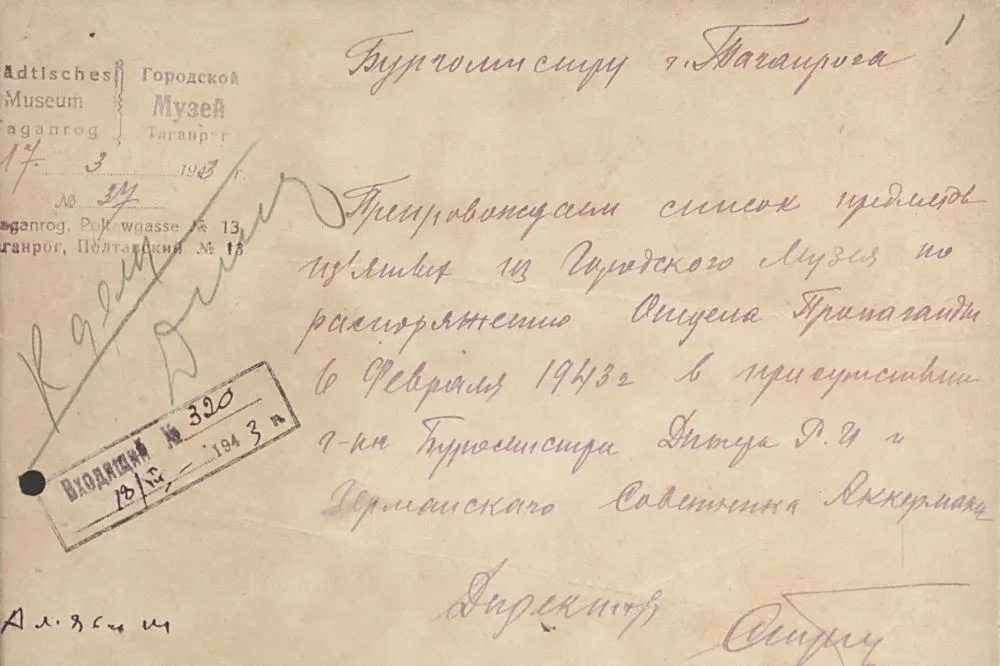 Бургомистру г. Таганрога
ädtisches Городской
Museum Музей
aganrog Таганрог
17. 3 1943 г.
№ 37
aganrog. Poltawgasse № 13
ганрог, Полтавский № 13
К делу
Препровождаем список предметов
изъятых из Городского Музея по
распоряжению Отдела Пропаганды
6 Февраля 1943 г в присутствии
г-на Бургомистра Дитера Р. И и
Германского Советника Аккермана
Входящий № 320
18/III 1943 г.
Директор